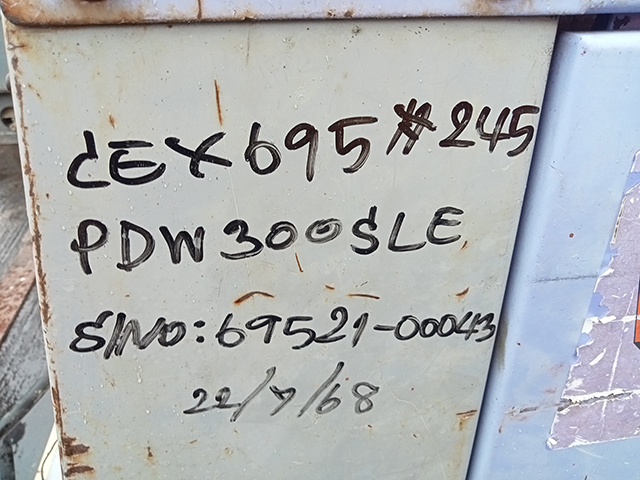 CEX695 #245
PDW300SLE
S/NO:69521-00043
22/7/68